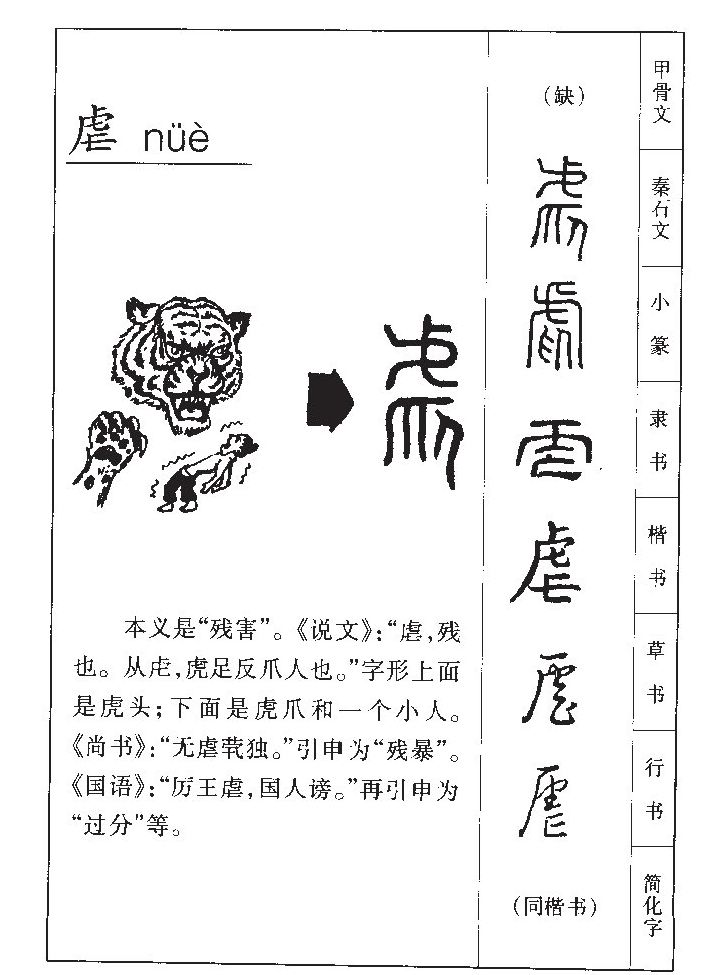 虐 nüè
本义是“残害”。《说文》:“虐,残
也。从虍,虎足反爪人也。”字形上面
是虎头;下面是虎爪和一个小人。
《尚书》:“无虐茕独。”引申为“残暴”。
《国语》:“厉王虐,国人谤。”再引申为
“过分”等。
虐
(缺)
虐
虐
虐
虐
虐
虐
(同楷书)
甲骨文
秦石文
小篆
隶书
楷书
草书
行书
简化字